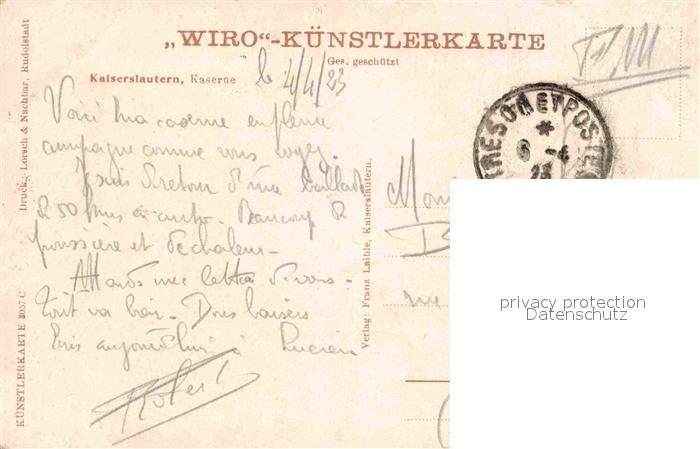 „WIRO“-KÜNSTLERKARTE
Ges. geschützt
Kaiserslautern, Kaserne
le 4/4/23
F.M
Voici ma caserne en pleine
campagne comme vous voyez.
Je suis de retour d'une ballade
de 50 kms en auto. Beaucoup de
poussière et de chaleur -
Attends une lettre de vous -
Tout va bien - Bons baisers
Ecris aujourd'hui à Lucien
Robert
TRESOR ET POSTES
*
6 -4
23
rue
Druck: Lorsch & Nachbar, Rudolstadt
KÜNSTLERKARTE 3057 C
Verlag: Franz Laible, Kaiserslautern.
privacy protection
Datenschutz